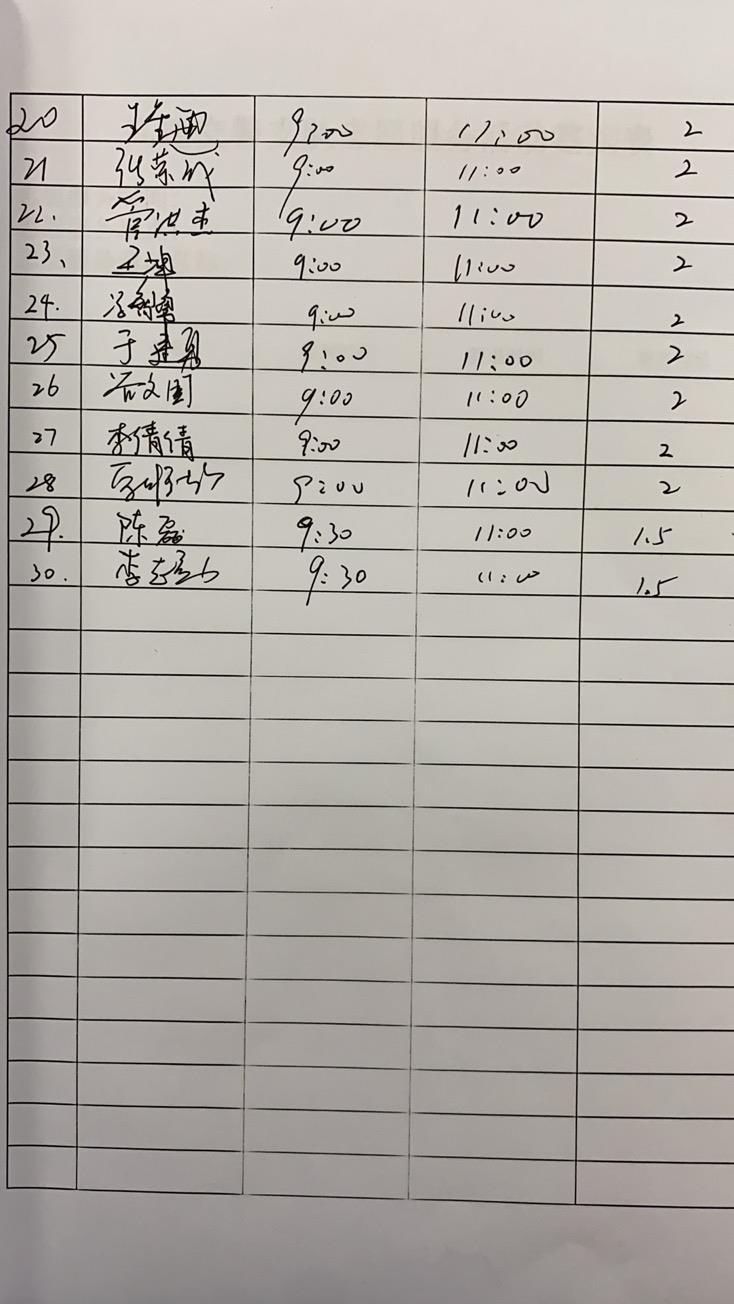 20 9:00 11:00 2
21 张荣成 9:00 11:00 2
22. 管洪杰 9:00 11:00 2
23、 9:00 11:00 2
24. 9:00 11:00 2
25 于建勇 9:00 11:00 2
26 谷文国 9:00 11:00 2
27 李倩倩 9:00 11:00 2
28 9:00 11:00 2
29. 陈磊 9:30 11:00 1.5
30. 李 9:30 11:00 1.5